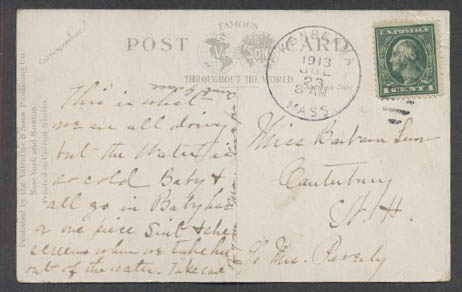 FAMOUS
POST CARD
THROUGHOUT THE WORLD
Correspondence
Published by the Valentine & Sons Publishing Co.
New York and Boston.
Printed in United States
1913
MASS
U.S. POSTAGE
1 CENT 1
This is what
we are all doing
but the Water is
so cold Baby &
all go in Baby has
a one piece Suit & she
screems when we take her
out of the water. Take care
Miss Barbara
Canterbury
N.H.
c/o Mrs. Beverly